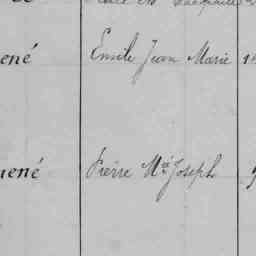 ené Emile Jean Marie 1
ené Pierre Mie Joseph